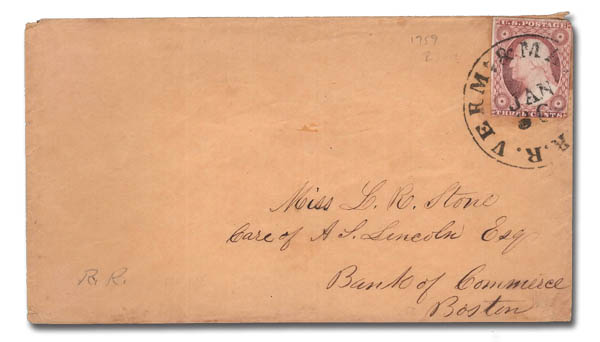 1759
2
U.S. POSTAGE
THREE CENTS
VERM. & M
R.R.
JAN
Miss L. R. Stone
Care of A S. Lincoln Esq
Bank of Commerce
Boston
R. R.